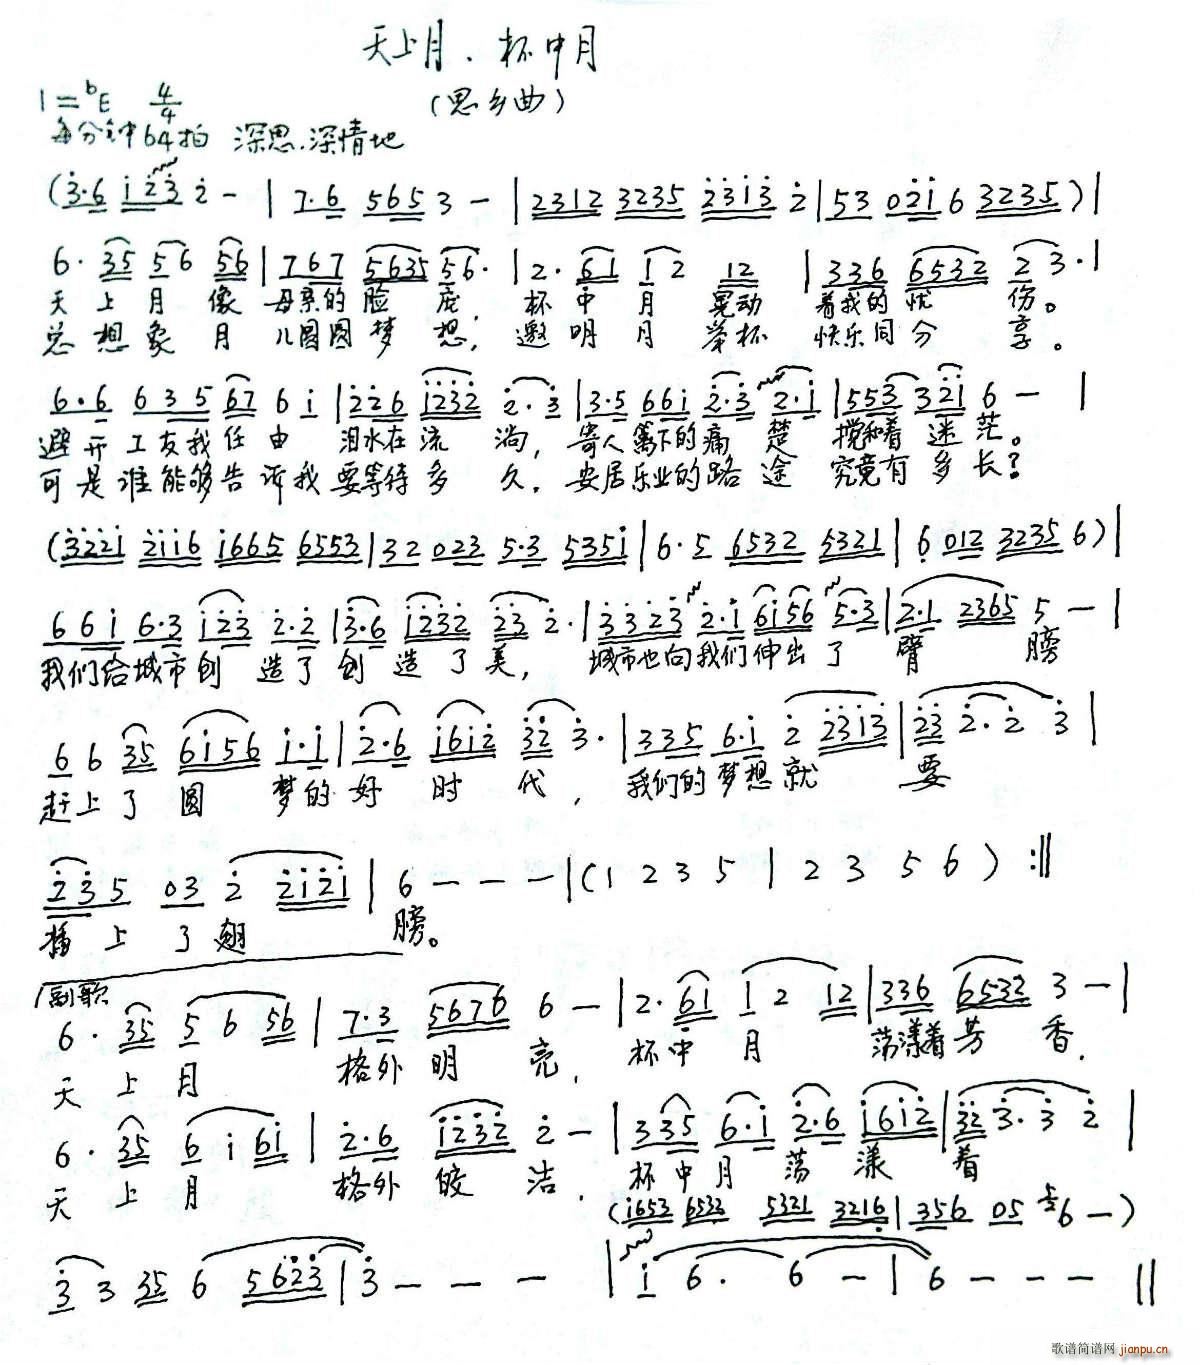 天上月·杯中月
(思乡曲)
1=bE 4/4
每分钟64拍 深思.深情地
(3·6 123 2 - | 7·6 565 3 - | 2312 3235 2313 2 | 53 021 6 3235)|
6· 35 56 56 | 767 5635 56· | 2· 61 12 12 | 336 6532 23· |
天上月像母亲的脸庞,杯中月晃动着我的忧伤。
总想象月儿圆圆梦想,邀明月举杯快乐同分享。
6·6 635 67 6i | 226 1232 2·3 | 3·5 661 2·3 2·i | 553 321 6 - |
避开工友我任由泪水在流淌,寄人篱下的痛楚搅和着迷茫。
可是谁能够告诉我要等待多久,安居乐业的路途究竟有多长?
(3221 2116 1665 6553 | 32 023 5·3 5351 | 6·5 6532 5321 | 6 012 3235 6)|
661 6·3 123 2·2 | 3·6 1232 23 2· | 3323 2·1 6156 5·3 | 2·1 2365 5 - |
我们给城市创造了创造了美,城市也向我们伸出了臂膀
66 35 6156 1·1 | 2·6 1612 32 3· | 335 6·1 2 2313 | 23 2·2 3 |
赶上了圆梦的好时代,我们的梦想就要
235 03 2 2121 | 6 - - - | (1 2 3 5 | 2 3 5 6) :‖
插上了翅膀。
副歌
6· 35 5 6 56 | 7·3 5676 6 - | 2· 61 1 2 12 | 336 6532 3 - |
天上月格外明亮,杯中月荡漾着芳香,
6· 35 6 1 61 | 2·6 1232 2 - | 335 6·1 2·6 1612 | 32 3·3 2 |
天上月格外皎洁,杯中月荡漾着
(1653 6532 5321 3216 | 356 05 56 -)
3 3 35 6 5623 | 3 - - - | 1 6· 6 - | 6 - - - ‖
歌谱简谱网 jianpu.cn